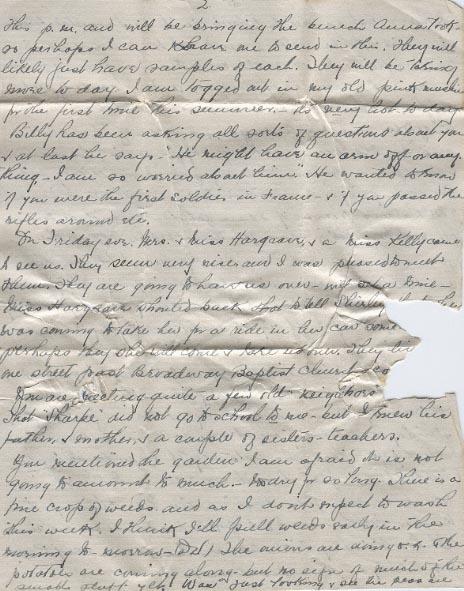 2
this p.m. and will be bringing the bunch Anna took
so perhaps I can have one to send in this. They will
likely just have samples of each. They will be taking
more to day. I am togged out in my old pink muslin
for the first time this summer. It's very hot to day
Billy has been asking all sorts of questions about you
& at last he says - "He might have an arm off or any
thing - I am so worried about him." He wanted to know
if you were the first soldier in France - & if you passed the
rifles around etc.
On Friday eve. Mrs. & Miss Hargrave, & a Miss Kelly came
to see us. They seem very nice and I was pleased to meet
them. They are going to have us over - will set a time -
Miss Hargrave shouted back that to tell Shirley that she
was coming to take her for a ride in her car some
perhaps they will come & see us. They live
one street past Broadway Baptist Church
You are meeting quite a few old neighbors
That Sharpe did not go to school to me - but I knew his
father, & mother, & a couple of sisters - teachers.
You mentioned the garden I am afraid it is not
going to amount to much - so dry for so long. There is a
fine crop of weeds and as I don't expect to wash
this week, I think I'll pull weeds early in the
morning to morrow. The onions are doing o.k. & the
potatoes are coming along - but no sign of much of the
small stuff yet. Was just looking & see the peas are